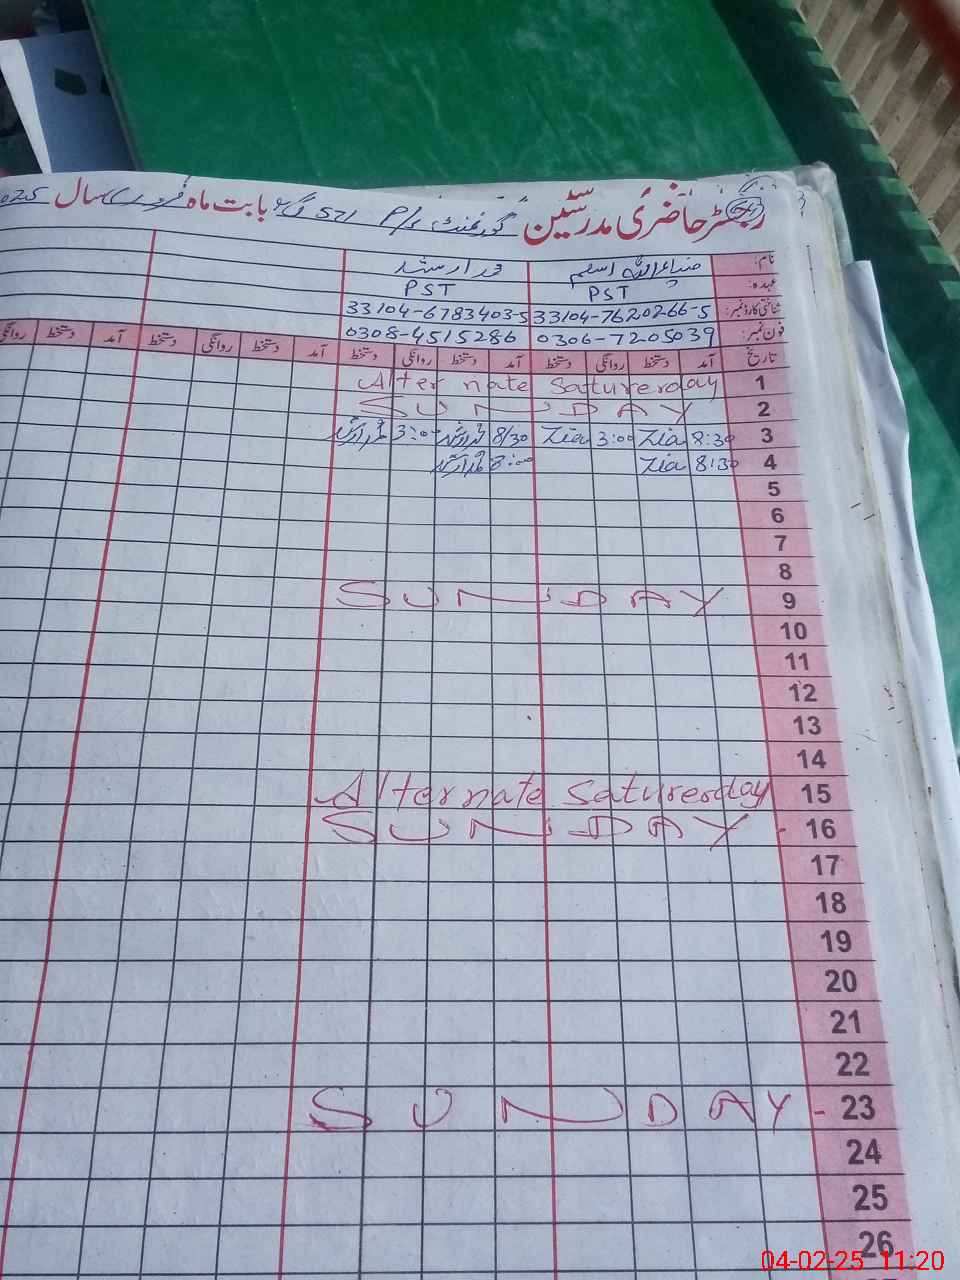 رجسٹر حاضری مدرسین گورنمنٹ P/S 571 گ ب بابت ماہ فروری سال 025
نام: ضیاء اللہ اسلم
عہدہ: PST PST
شناختی کارڈ نمبر: 33104-7620266-5 33104-6783403-5
فون نمبر: 0306-7205039 0308-4515286
تاریخ آمد دستخط روانگی دستخط آمد دستخط روانگی دستخط آمد دستخط روانگی دستخط آمد دستخط روانگی
1 Alternate Satuerday
2 SUNDAY
3 8:30 Zia 3:00 Zia 8/30 3:00
4 8:30 Zia 8:00
5
6
7
8
9 SUNDAY
10
11
12
13
14
15 Alternate Satuerday
16 SUNDAY
17
18
19
20
21
22
23 SUNDAY
24
25
26
04-02-25 11:20